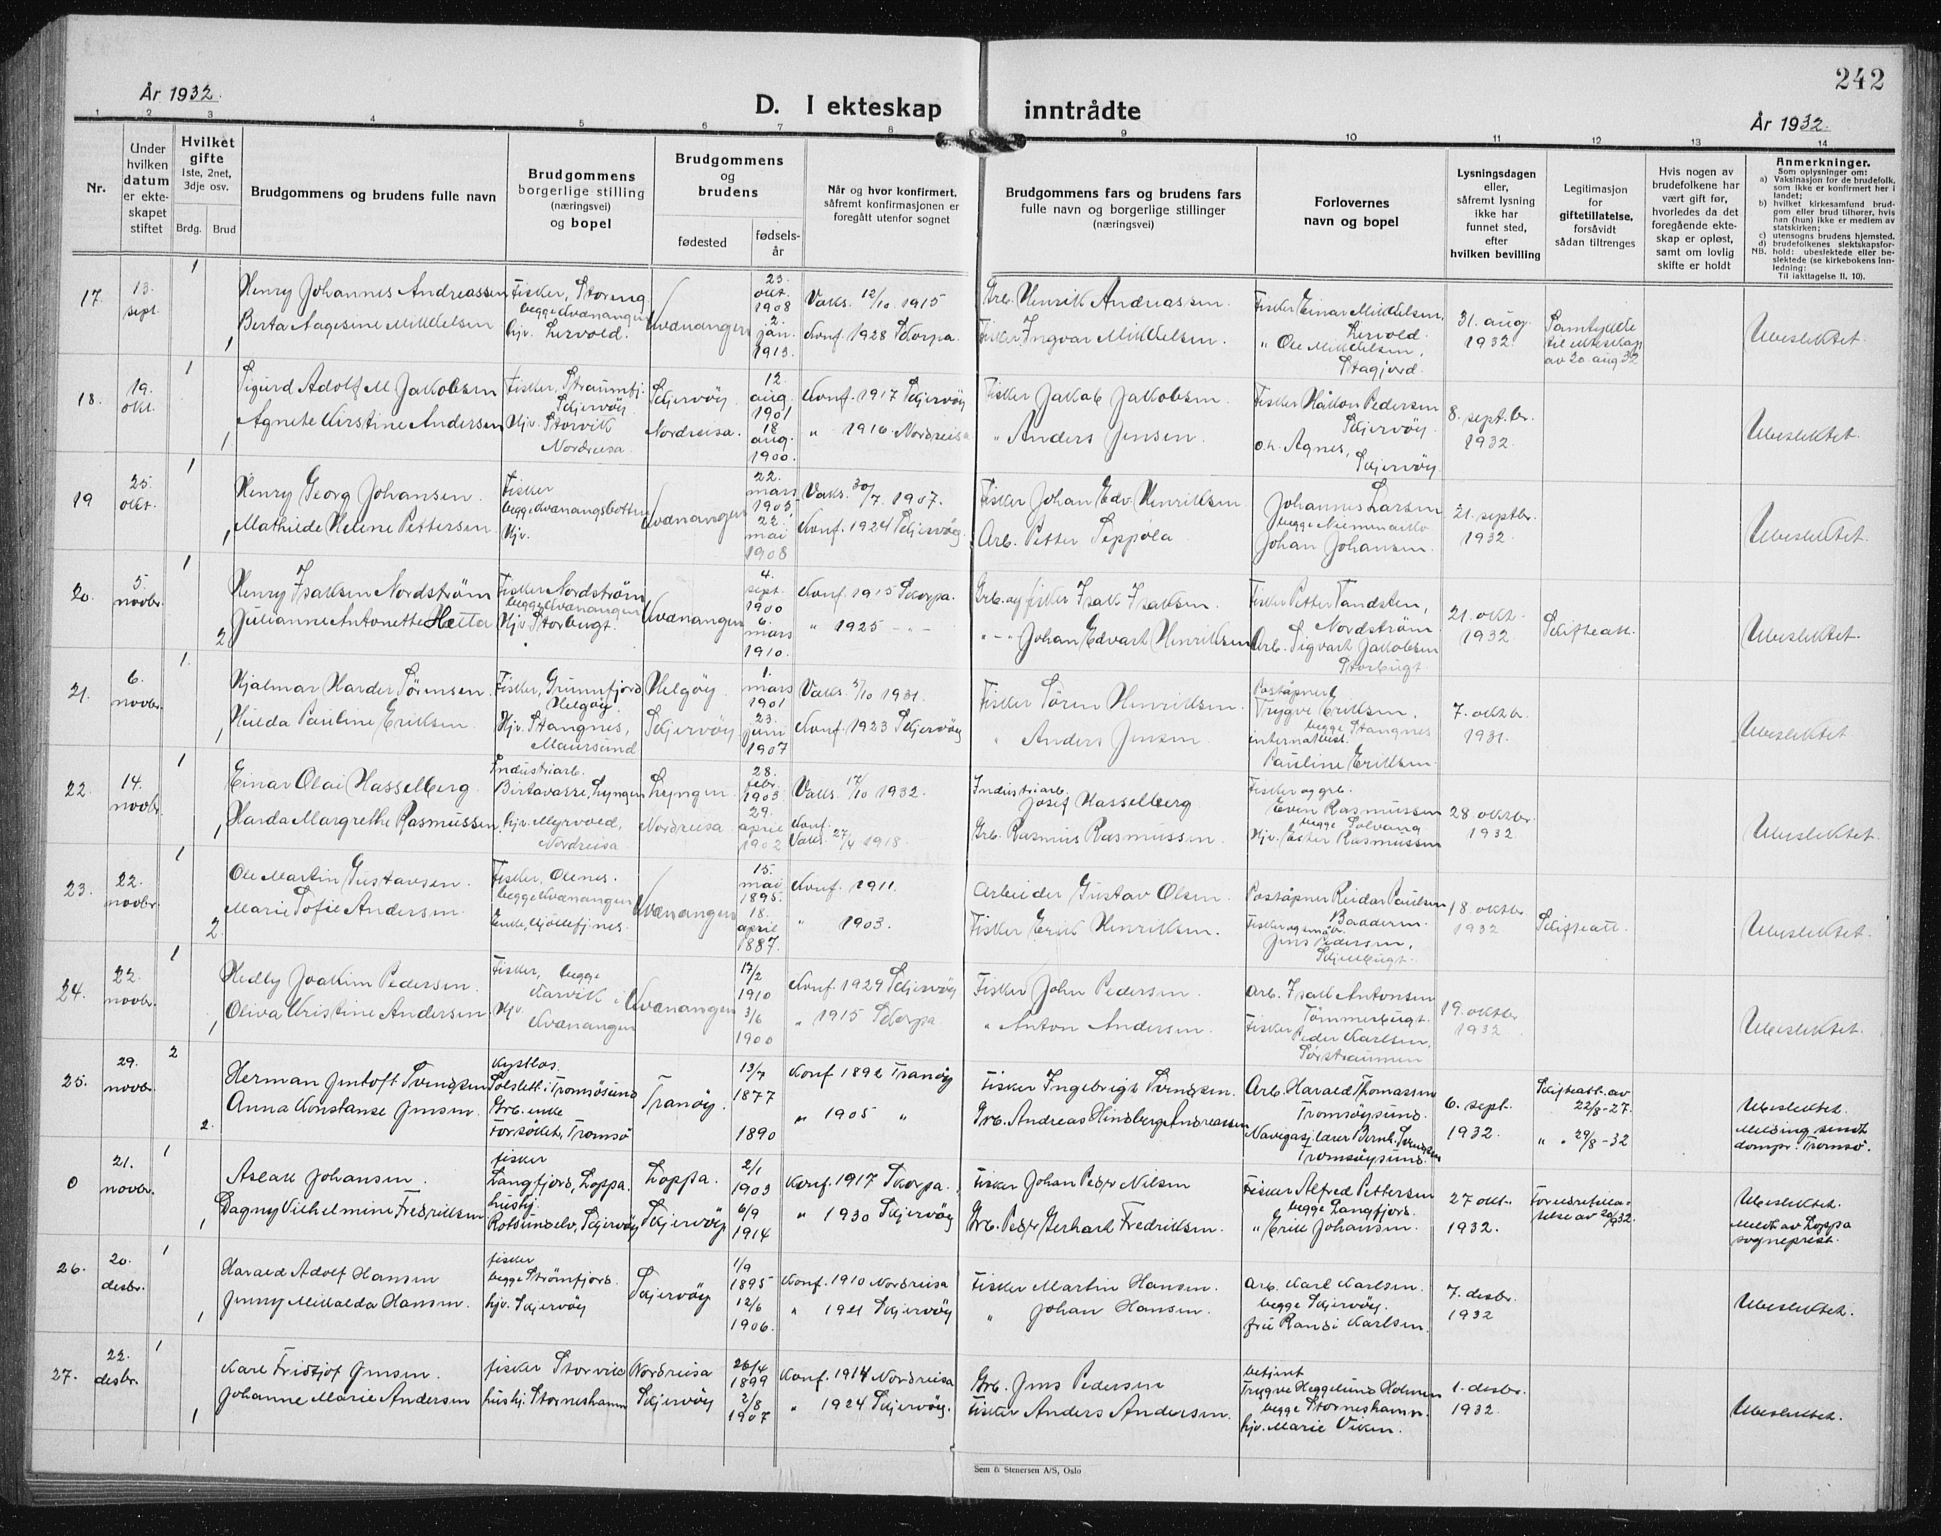 242
År 1932.
D. I ekteskap inntrådte
År 1932.
1 2 3 4 5 6 7 8 9 10 11 12 13 14
Nr.
Under hvilken datum er ekteskapet stiftet
Hvilket gifte 1ste, 2net, 3dje osv.
Brdg. Brud
Brudgommens og brudens fulle navn
Brudgommens borgerlige stilling (næringsvei) og bopel
Brudgommens og brudens
fødested
fødselsår
Når og hvor konfirmert, såfremt konfirmasjonen er foregått utenfor sognet
Brudgommens fars og brudens fars fulle navn og borgerlige stillinger (næringsvei)
Forlovernes navn og bopel
Lysningsdagen eller, såfremt lysning ikke har funnet sted, efter hvilken bevilling
Legitimasjon for giftetillatelse, forsåvidt sådan tiltrenges
Hvis nogen av brudefolkene har vært gift før, hvorledes da det foregående ekteskap er opløst, samt om lovlig skifte er holdt
Anmerkninger.
Som oplysninger om:
a) Vaksinasjon for de brudefolk, som ikke er konfirmert her i landet;
b) hvilket kirkesamfund brudgom eller brud tilhører, hvis han (hun) ikke er medlem av statskirken;
c) utensogns brudens hjemsted.
d) brudefolkenes slektskapsforhold: ubeslektede eller beslektede (se kirkebokens innledning:
NB.
Til iakttagelse II. 10).
17. 13. sept. 1 Henry Johannes Andreassen Fisker, Storeng begge Kvænangen Kvænangen 23. okt. 1908 Vaks. 12/10 1915 Grb. Henrik Andreassen. Fisker Einar Mikkelsen, Lervold. 31. aug. 1932. Samtykke til ekteskap av 20 aug 32 Ubeslektet.
1 Berta Aagesine Mikkelsen hjv. Lervold. 2. jan. 1913. Konf. 1928 Skorpa. Fisker Ingvar Mikkelsen. " Ole Mikkelsen,
18. 19. okt. 1 Sigurd Adolf M. Jakobsen Fisker, Straumfj. Skjervøy. Skjervøy 12. aug. 1901 Konf. 1917 Skjervøy Fisker Jakob Jakobsen. Fisker Håkon Pedersen Skjervøy. 8. septbr. 1932. Ubeslektet.
1 Agnete Kirstine Andersen Hjv. Storvik Nordreisa. Nordreisa. 18 aug. 1900. " 1916 Nordreisa " Anders Jensen. o.h. Agnes, Skjervøy.
19 25. okt. 1 Henry Georg Johansen. Fisker begge Kvænangsbotten Kvænangen 22. mars 1905. Vaks. 30/7. 1907. Fisker Johan Edv. Henriksen Johannes Larsen 21. septbr. 1932. Ubeslektet.
1 Mathilde Helene Pettersen Hjv. 22. mai 1908 Konf. 1924 Skjervøy. Arb. Petter Seppola Johan Johansen.
20. 5. novbr. 1 Henry Isaksen Nordstrøm Fisker Nordstrøm begge Kvænangen Kvænangen 4. sept. 1900 Konf. 1915 Skorpa. Grb. og fisker Isak Isaksen. Fisker Petter Tandsten, Nordstrøm 21. oktbr. 1932. Skifteatt. Ubeslektet.
2. Julianne Antonette Hætta Hjv. Storbugt. 6. mars 1910. " 1925 - " - " - " Johan Edvart Henriksen Arb. Sigvart Jakobsen Storbugt.
21. 6. novbr. 1. Hjalmar Harder Sørensen Fisker, Grunnfjord Helgøy. Helgøy. 1. mars 1901 Vaks. 5/10 1931. Fisker Søren Henriksen. Poståpner Trygve Eriksen. begge Stangnes 7. oktbr. 1931. Ubeslektet.
1 Hulda Pauline Eriksen Hjv. Stangnes, Maursund Skjervøy 23. juni 1907 Konf. 1923 Skjervøy " Anders Jensen Pauline Eriksen.
22. 14. novbr. 1 Einar Olai Hasselberg. Industriarb. Birtavarre, Lyngen Lyngen. 28. febr. 1903. Vaks. 17/10 1932. Industriarb. Josef Hasselberg Fisker og grb. Even Rasmussen begge Solvang 28. oktbr. 1932. Ubeslektet.
1 Harda Margrethe Rasmussen. hjv. Myrvold, Nordreisa. Nordreisa 29. april 1902 Konf. Vaks. 27/4 1918. Grb. Rasmus Rasmussen. Hjv. Ester Rasmussen
23. 22. novbr. 1 Ole Martin Gustavsen. Fisker, Olenes. begge Kvænangen Kvænangen 15. mai 1895. Konf. 1911. Arbeider Gustav Olsen. Poståpner Reidar Paulsen Badderen. 18. oktbr. 1932 Skifteatt. Ubeslektet.
2. Marie Sofie Andersen. Enke, Kjøllefjnes. 18. april 1887. " 1903. Fisker Erik Henriksen. Fisker og småbr. Jens Pedersen,
24. 22. novbr. 1 Hedly Joakim Pedersen. Fisker, begge Karvik i Kvænangen Kvænangen 17/2 1910 Konf. 1929 Skjervøy Fisker John Pedersen. Arb. Isak Antonsen Tømmerbugt. 19. oktbr. 1932. Ubeslektet.
1 Oliva Kristine Andersen. Hjv. 3/6 1900 " 1915 Skorpa. " Anton Andersen. Fisker Peder Karlsen, Sørstraumen
25. 29. novbr. 2 Herman Jentoft Svendsen Solslett i Tromsøsund Tranøy. 13/7 1877 Konf 1892 Tranøy Fisker Ingebrigt Svendsen. Arb. Harald Thomassen Tromsøysund. 6. sept. 1932. Skifteatt. av 22/8-27. Ubeslektet. Melding sendt dompr. Tromsø.
2. Anna Konstanse Jensen. Grb. enke Tromsø 1890 " 1905 " Grb. Andreas Hindberg Andreassen Navigasj.lærer Bernh. Svendsen Tromsøysund. " " 29/8-32
0 21. novbr. 1 Aslak Johansen. fisker Langfjord, Loppa. Loppa. 2/1 1903 Konf. 1917 Skorpa. Fisker Johan Peder Nilsen Fisker Alfred Pettersen begge Langfjord. 27 okt. 1932. Foreldretillatelse av 20/9 32. Ubeslektet. Meldt av Loppa sogneprest.
1 Dagny Vilhelmine Fredriksen hushj. Rotsundelv, Skjervøy Skjervøy 6/9 1914 " 1930 Skjervøy Grb. Peder Gerhart Fredriksen. " Erik Johansen.
26. 20. desbr. 1 Harald Adolf Hansen fisker begge Strømfjord. Skjervøy 1/9 1895 Konf. 1910 Nordreisa Fisker Martin Hansen. Arb. Karl Karlsen. begge Skjervøy. 7. desbr. 1932 Ubeslektet.
1 Jenny Mikalda Hansen. hjv. Skjervøy 12/6 1906. " 1921 Skjervøy " Johan Hansen. fru Randi Karlsen.
27. 22. desbr. 1 Karl Fridtjof Jensen. fisker Storvik Nordreisa 26/4 1899 Konf. 1914 Nordreisa Grb. Jens Pedersen betjent Trygve Heggelund Holmen begge Storneshamn. 1. desbr. 1932. Ubeslektet.
1 Johanne Marie Andersen hushj. Storneshamn Skjervøy 2/8 1907 " 1924 Skjervøy. Fisker Anders Andersen. hjv. Marie Viken.
Sem & Stenersen A/S, Oslo